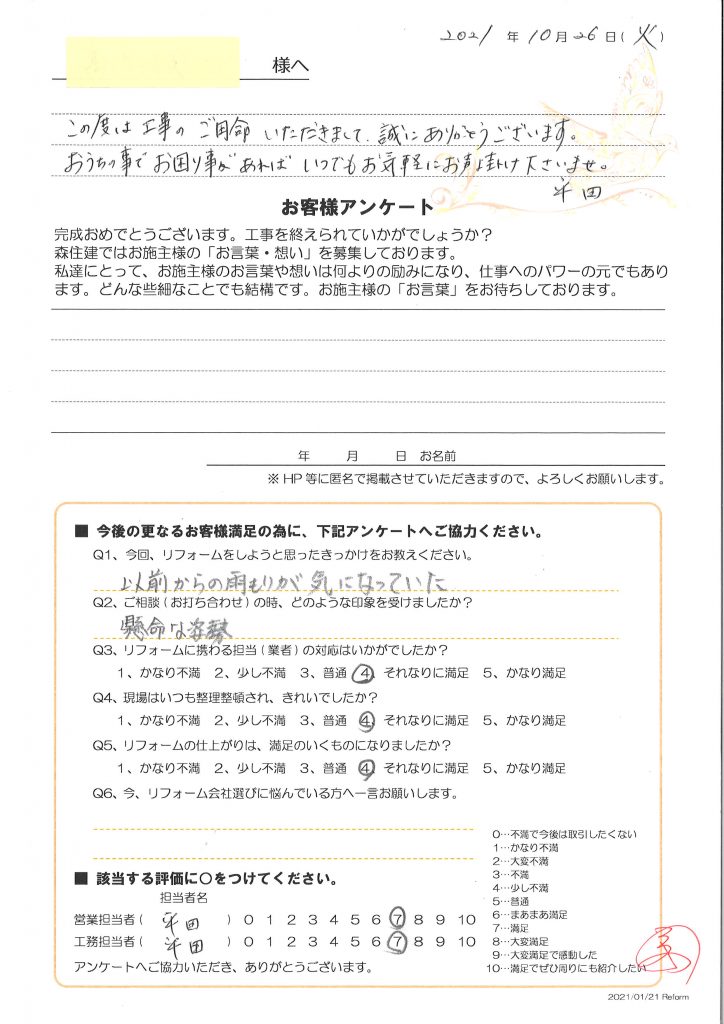 2021年10月26日(火)
様へ
この度は工事のご用命いただきまして、誠にありがとうございます。
おうちの事でお困り事があればいつでもお気軽にお声掛け下さいませ。
平田
お客様アンケート
完成おめでとうございます。工事を終えられていかがでしょうか？
森住建ではお施主様の「お言葉・想い」を募集しております。
私達にとって、お施主様のお言葉や想いは何よりの励みになり、仕事へのパワーの元でもあり
ます。どんな些細なことでも結構です。お施主様の「お言葉」をお待ちしております。
年　月　日　お名前
※HP等に匿名で掲載させていただきますので、よろしくお願いします。
■ 今後の更なるお客様満足の為に、下記アンケートへご協力ください。
Q1、今回、リフォームをしようと思ったきっかけをお教えください。
以前からの雨もりが気になっていた
Q2、ご相談(お打ち合わせ)の時、どのような印象を受けましたか？
懸命な姿勢
Q3、リフォームに携わる担当(業者)の対応はいかがでしたか？
1、かなり不満　2、少し不満　3、普通　4、それなりに満足　5、かなり満足
Q4、現場はいつも整理整頓され、きれいでしたか？
1、かなり不満　2、少し不満　3、普通　4、それなりに満足　5、かなり満足
Q5、リフォームの仕上がりは、満足のいくものになりましたか？
1、かなり不満　2、少し不満　3、普通　4、それなりに満足　5、かなり満足
Q6、今、リフォーム会社選びに悩んでいる方へ一言お願いします。
0…不満で今後は取引したくない
1…かなり不満
2…大変不満
3…不満
4…少し不満
5…普通
6…まあまあ満足
7…満足
8…大変満足
9…大変満足で感動した
10…満足でぜひ周りにも紹介したい
■ 該当する評価に○をつけてください。
担当者名
営業担当者(平田) 0 1 2 3 4 5 6 7 8 9 10
工務担当者(平田) 0 1 2 3 4 5 6 7 8 9 10
アンケートへご協力いただき、ありがとうございます。
2021/01/21 Reform